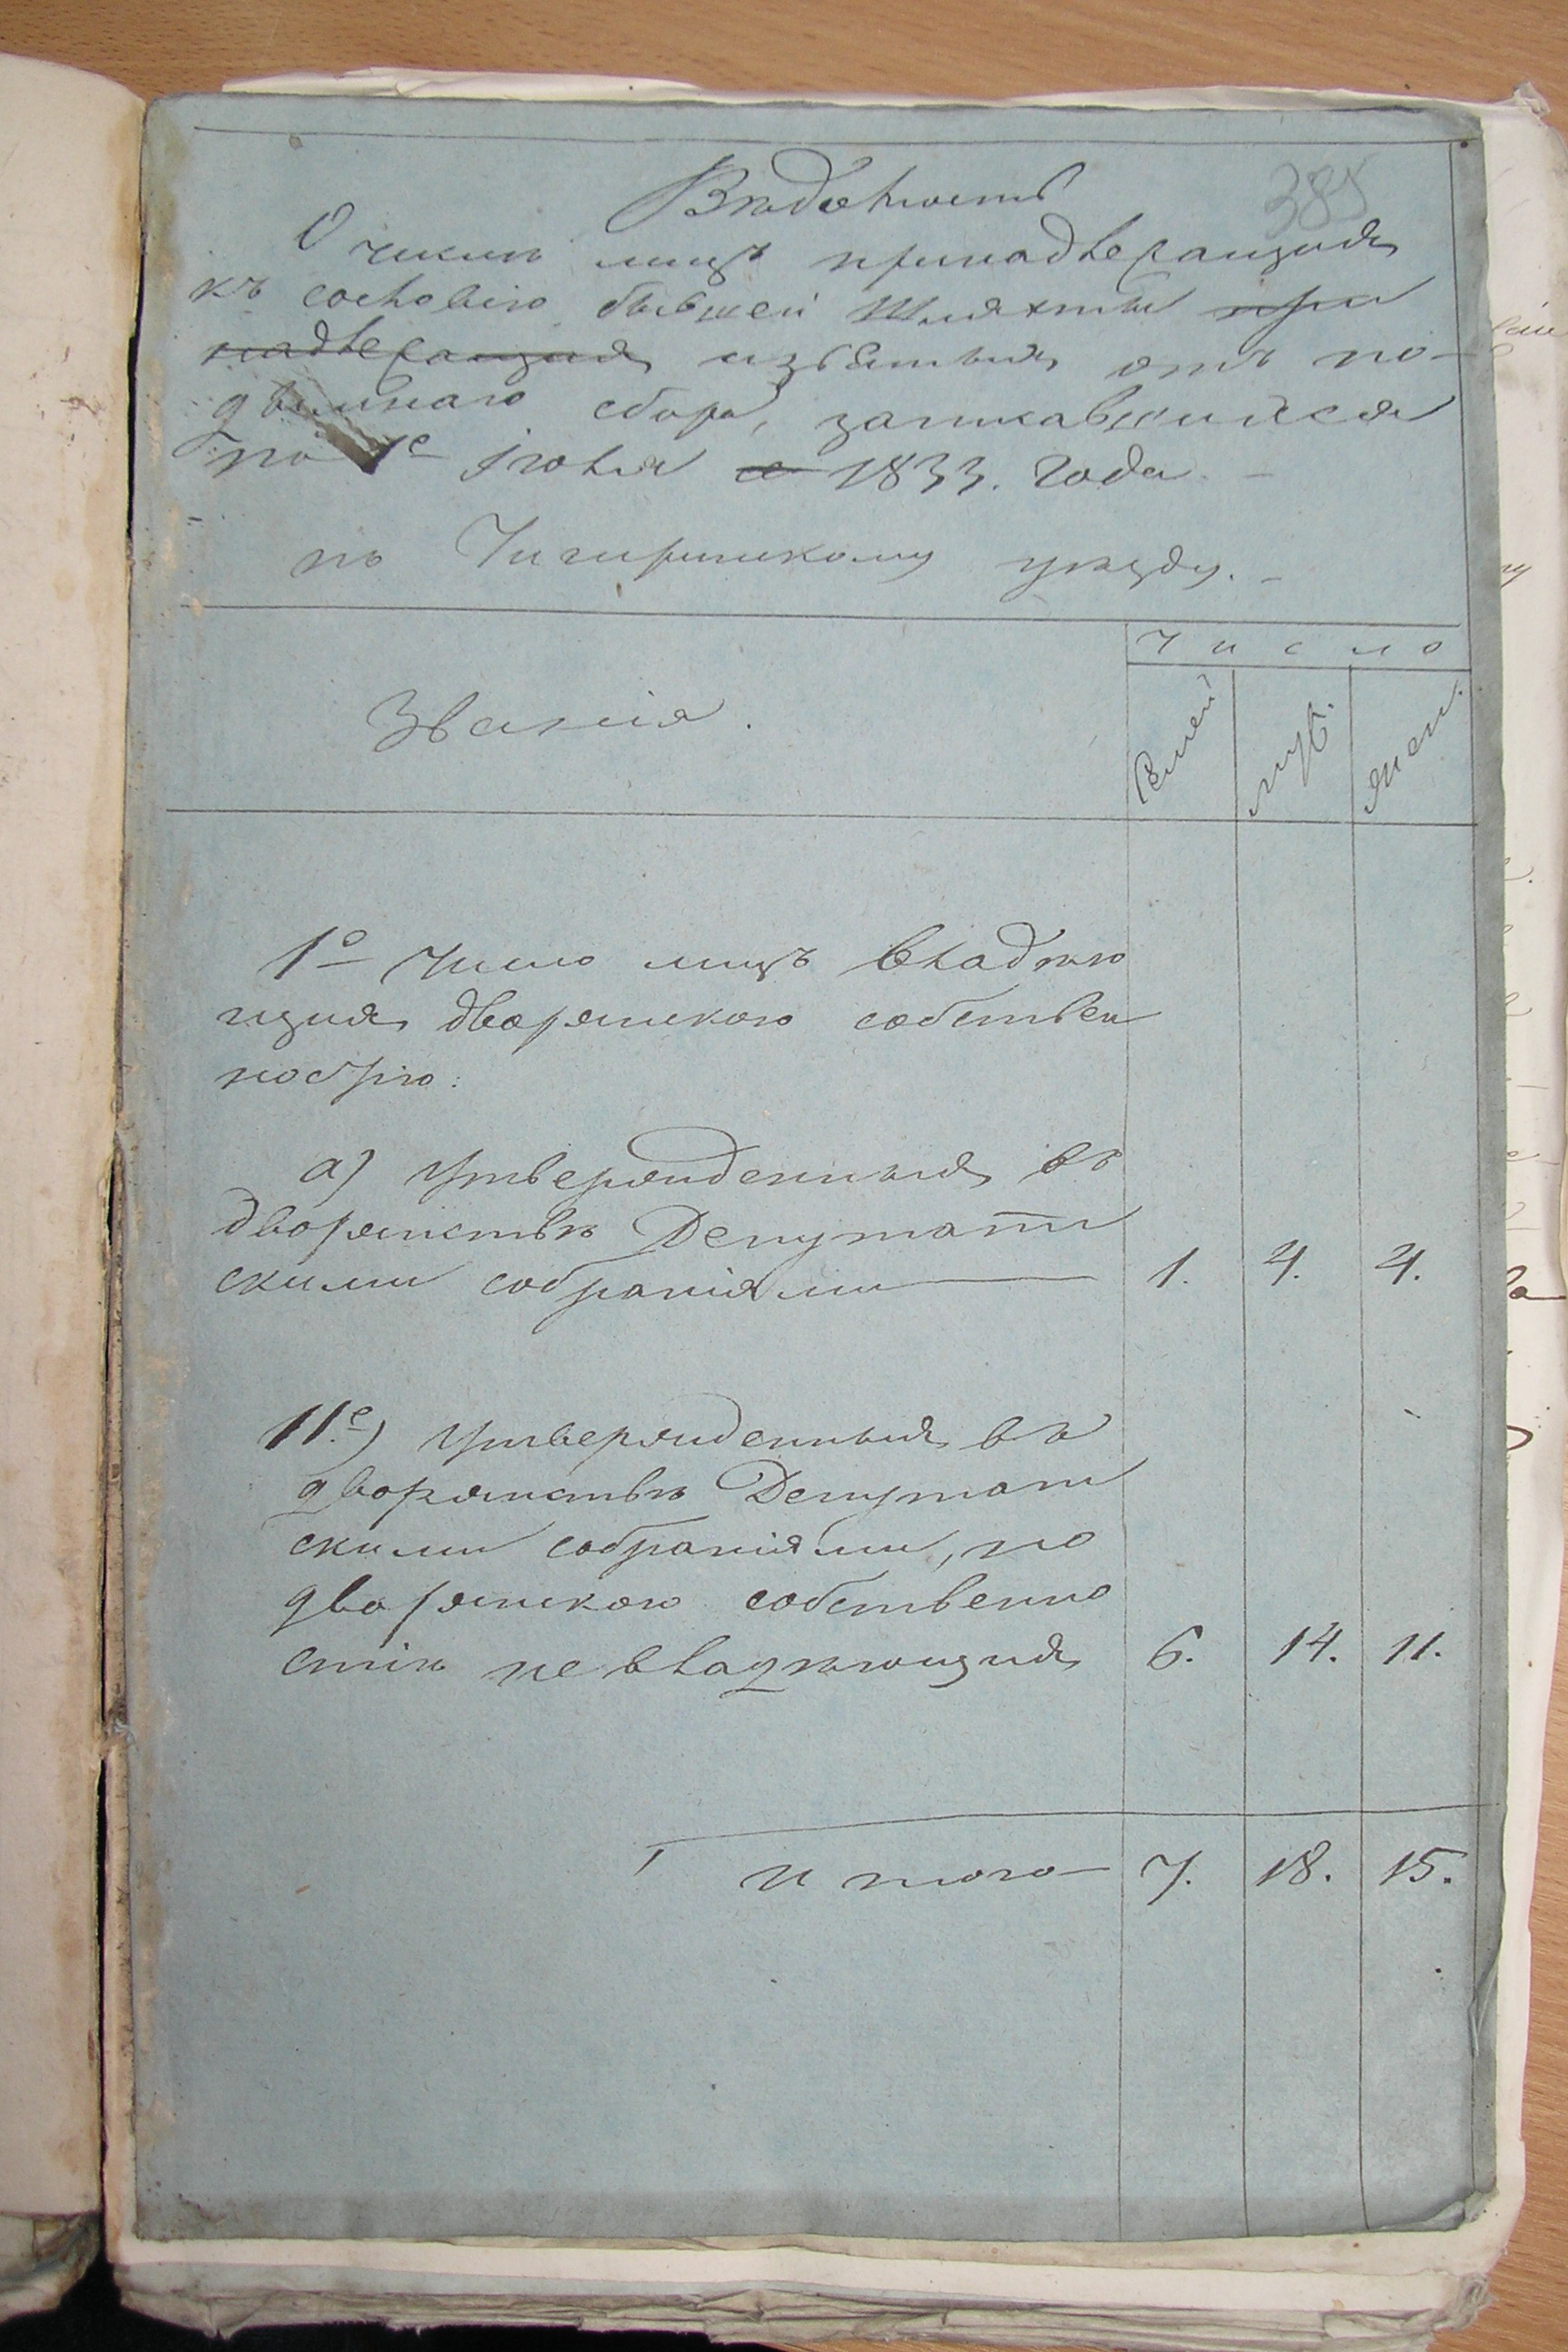 Вѣдомость
385
О числѣ лицъ принадлежащихъ
къ сословію бывшей Шляхты при
надлежащихъ изъятыхъ отъ по-
дымнаго сбора, записавшихся
по 1е Іюля 1833. года. -
по Чигиринскому уѣзду. -
число
Званія.
Семей
муж.
жен.
1е Число лицъ владѣю
щихъ дворянскою собствен
ностію:
а) Утвержденныхъ въ
дворянствѣ Депутат
скими собраніями 1. 4. 4.
11.е) Утвержденныхъ въ
дворянствѣ Депутат
скими собраніями, но
дворянскою собственно
стію не владѣющихъ 6. 14. 11.
итого 7. 18. 15.